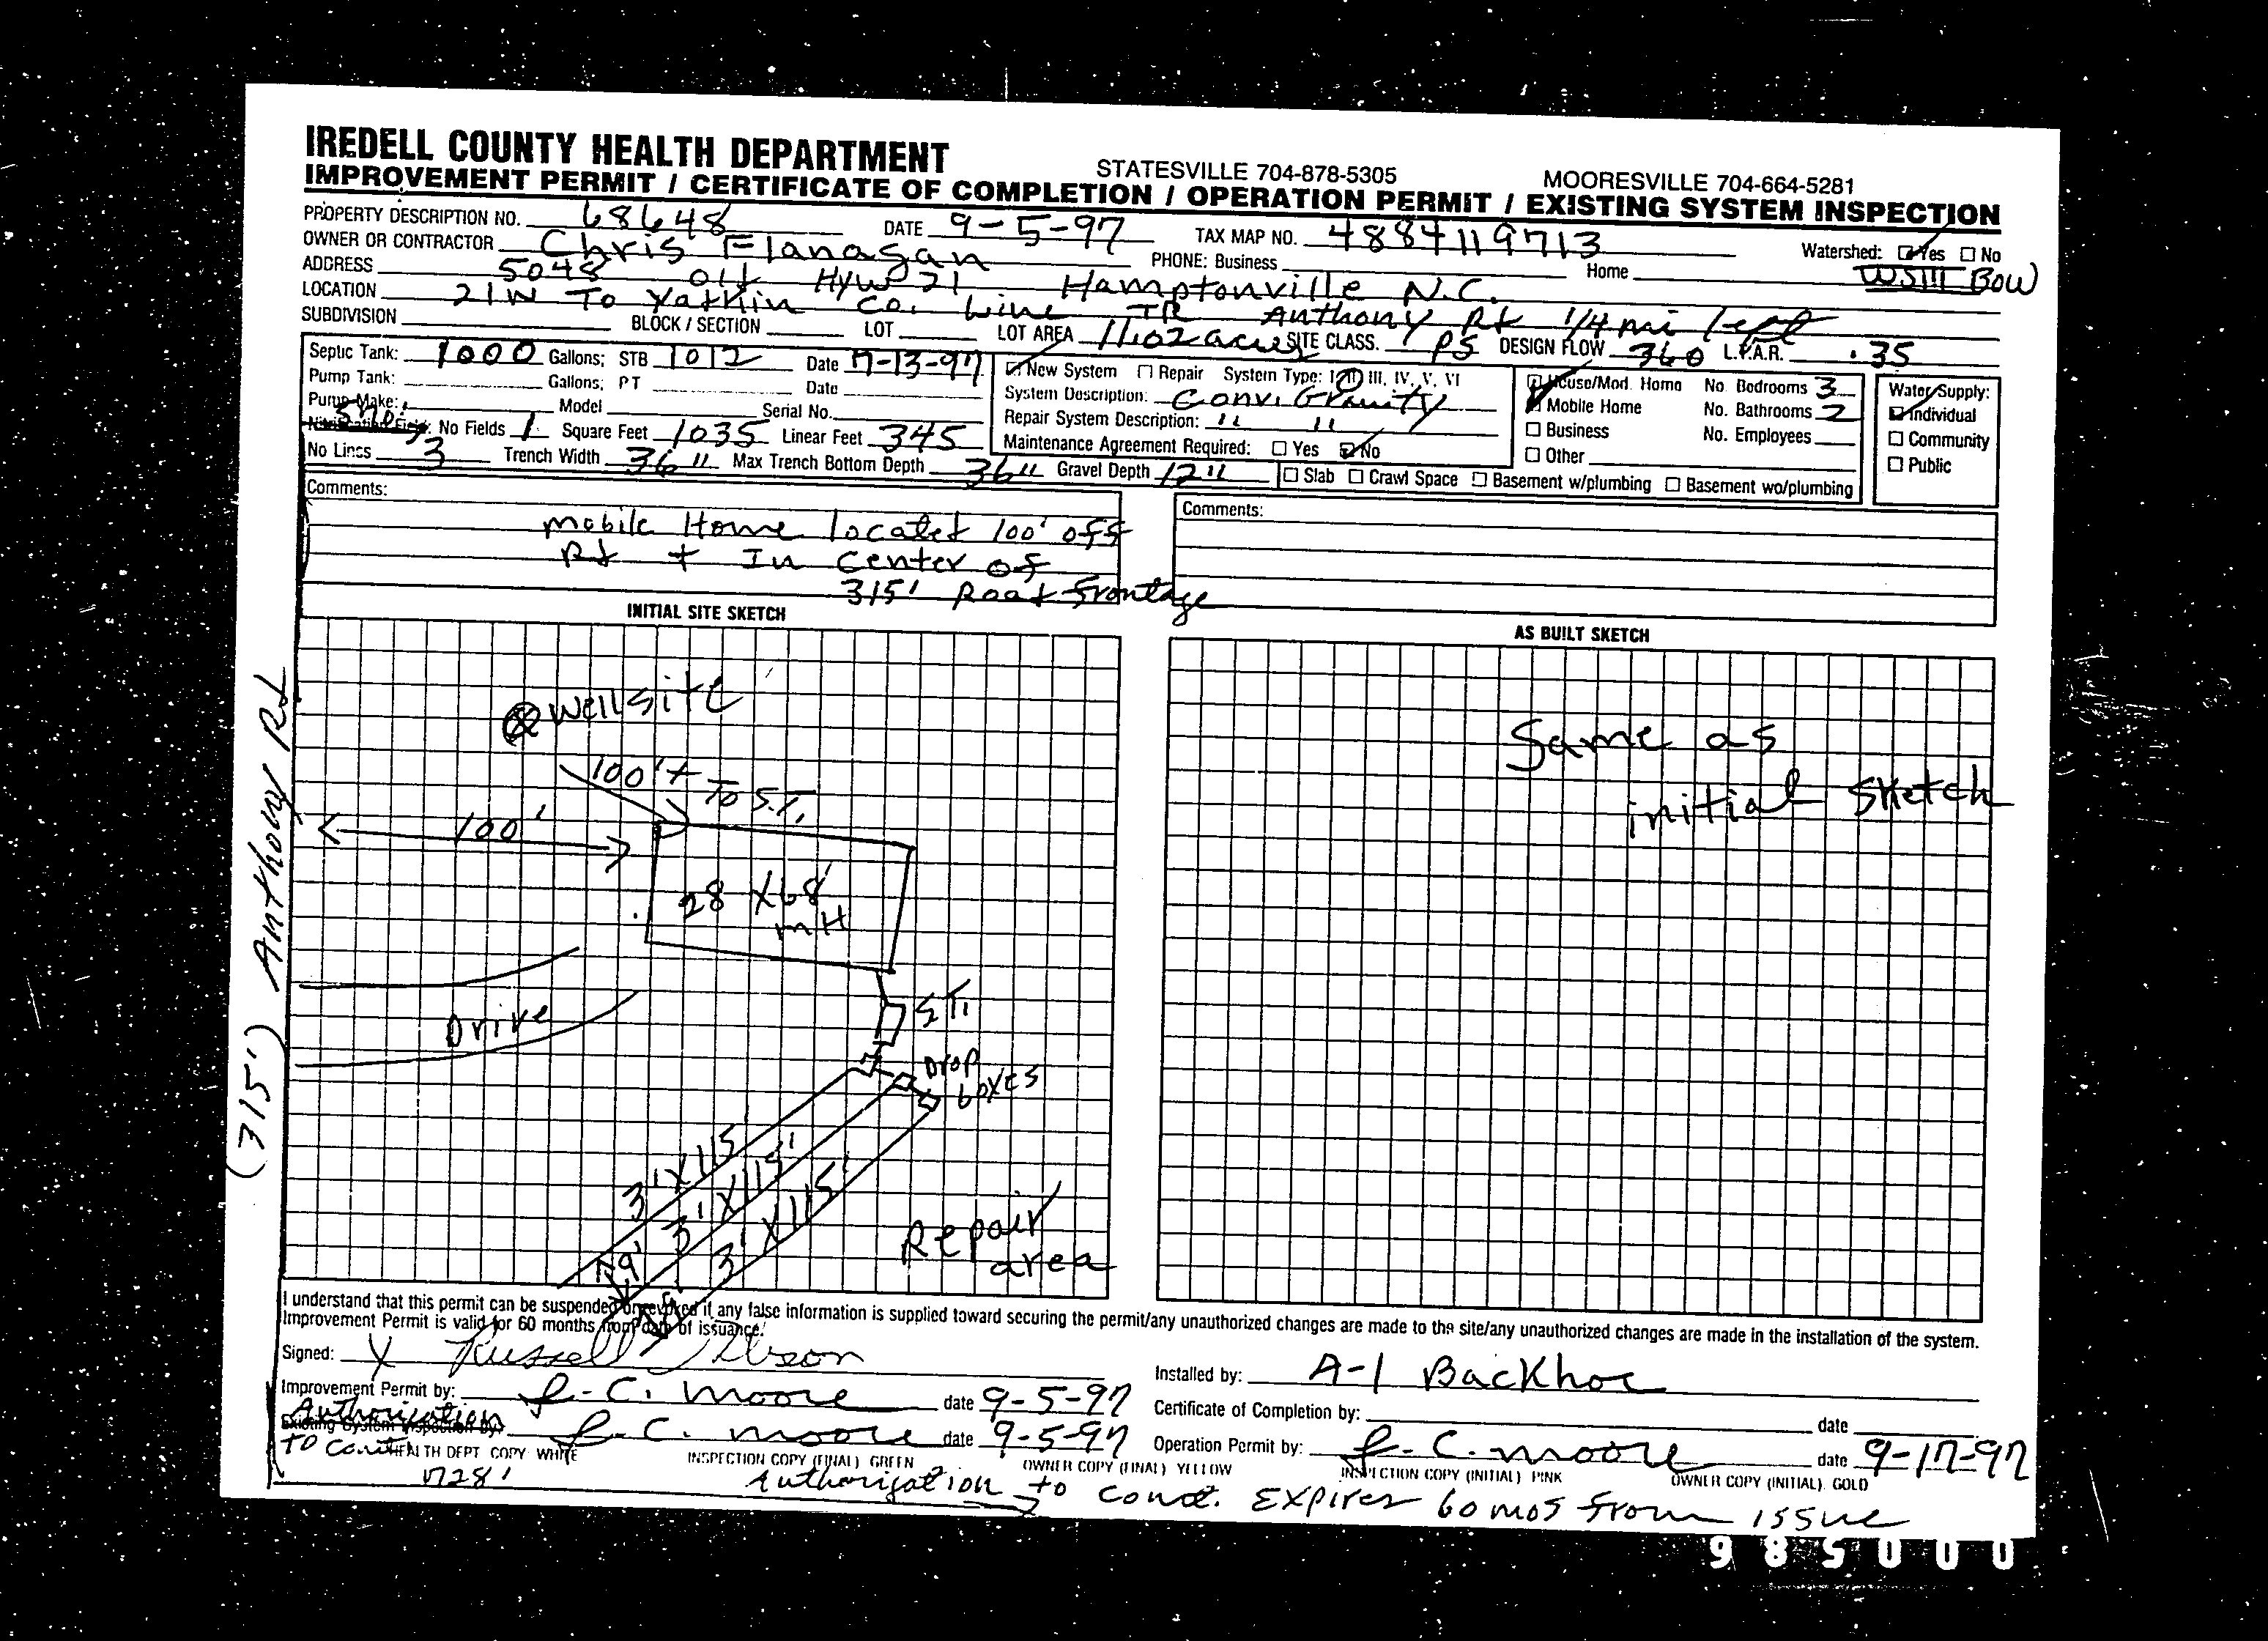 IREDELL COUNTY HEALTH DEPARTMENT STATESVILLE 704-878-5305 MOORESVILLE 704-664-5281
IMPROVEMENT PERMIT / CERTIFICATE OF COMPLETION / OPERATION PERMIT / EXISTING SYSTEM INSPECTION
PROPERTY DESCRIPTION NO. 68648 DATE 9-5-97 TAX MAP NO. 4884119713 Watershed: Yes No
OWNER OR CONTRACTOR Chris Flanagan PHONE: Business Home WSIII BOW
ADDRESS 5048 Old Hyw 21 Hamptonville N.C.
LOCATION 21N To Yadkin Co. Line TR Anthony Rd 1/4 mi left
SUBDIVISION BLOCK / SECTION LOT LOT AREA 11.02 acres SITE CLASS. PS DESIGN FLOW 360 L.T.A.R. .35
Septic Tank: 1000 Gallons; STB 1012 Date 7-13-97 New System Repair System Type: I, II, III, IV, V, VI House/Mod. Home No. Bedrooms 3 Water Supply:
Pump Tank: Gallons; PT Date System Description: Conv. Gravity Mobile Home No. Bathrooms 2 Individual
Pump Make: Model Serial No. Repair System Description: " " Business No. Employees Community
No Fields 1 Square Feet 1035 Linear Feet 345 Maintenance Agreement Required: Yes No Other Public
No Lines 3 Trench Width 36" Max Trench Bottom Depth 36" Gravel Depth 12" Slab Crawl Space Basement w/plumbing Basement wo/plumbing
Comments: Comments:
mobile Home located 100' off
Rd + In Center of
315' Road Frontage
INITIAL SITE SKETCH AS BUILT SKETCH
Anthony Rd (315')
Well site
100'+ To S.T.
100'
28 X 68'
mH
Drive
S.T.
Drop
boxes
3' X 115'
3' X 115'
3' X 115'
9'
Repair
area
Same as
initial Sketch
I understand that this permit can be suspended or revoked if any false information is supplied toward securing the permit/any unauthorized changes are made to the site/any unauthorized changes are made in the installation of the system.
Improvement Permit is valid for 60 months from date of issuance.
Signed: X Russell Installed by: A-1 Backhoe
Improvement Permit by: J.C. Moore date 9-5-97 Certificate of Completion by: date
Authorization
Existing System Inspection by: J.C. Moore date 9-5-97 Operation Permit by: J.C. Moore date 9-17-97
TO Const HEALTH DEPT COPY WHITE INSPECTION COPY (FINAL) GREEN OWNER COPY (FINAL) YELLOW INSPECTION COPY (INITIAL) PINK OWNER COPY (INITIAL) GOLD
728' Authorization to const. Expires 60 mos from issue
985000